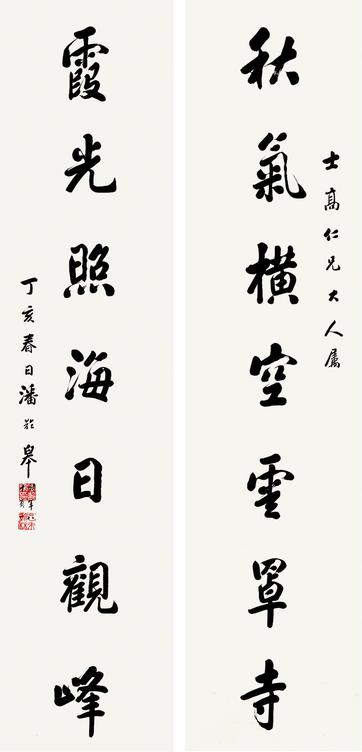 士高仁兄大人属
秋氣横空雲罩寺
霞光照海日觀峰
丁亥春日潘齡皋